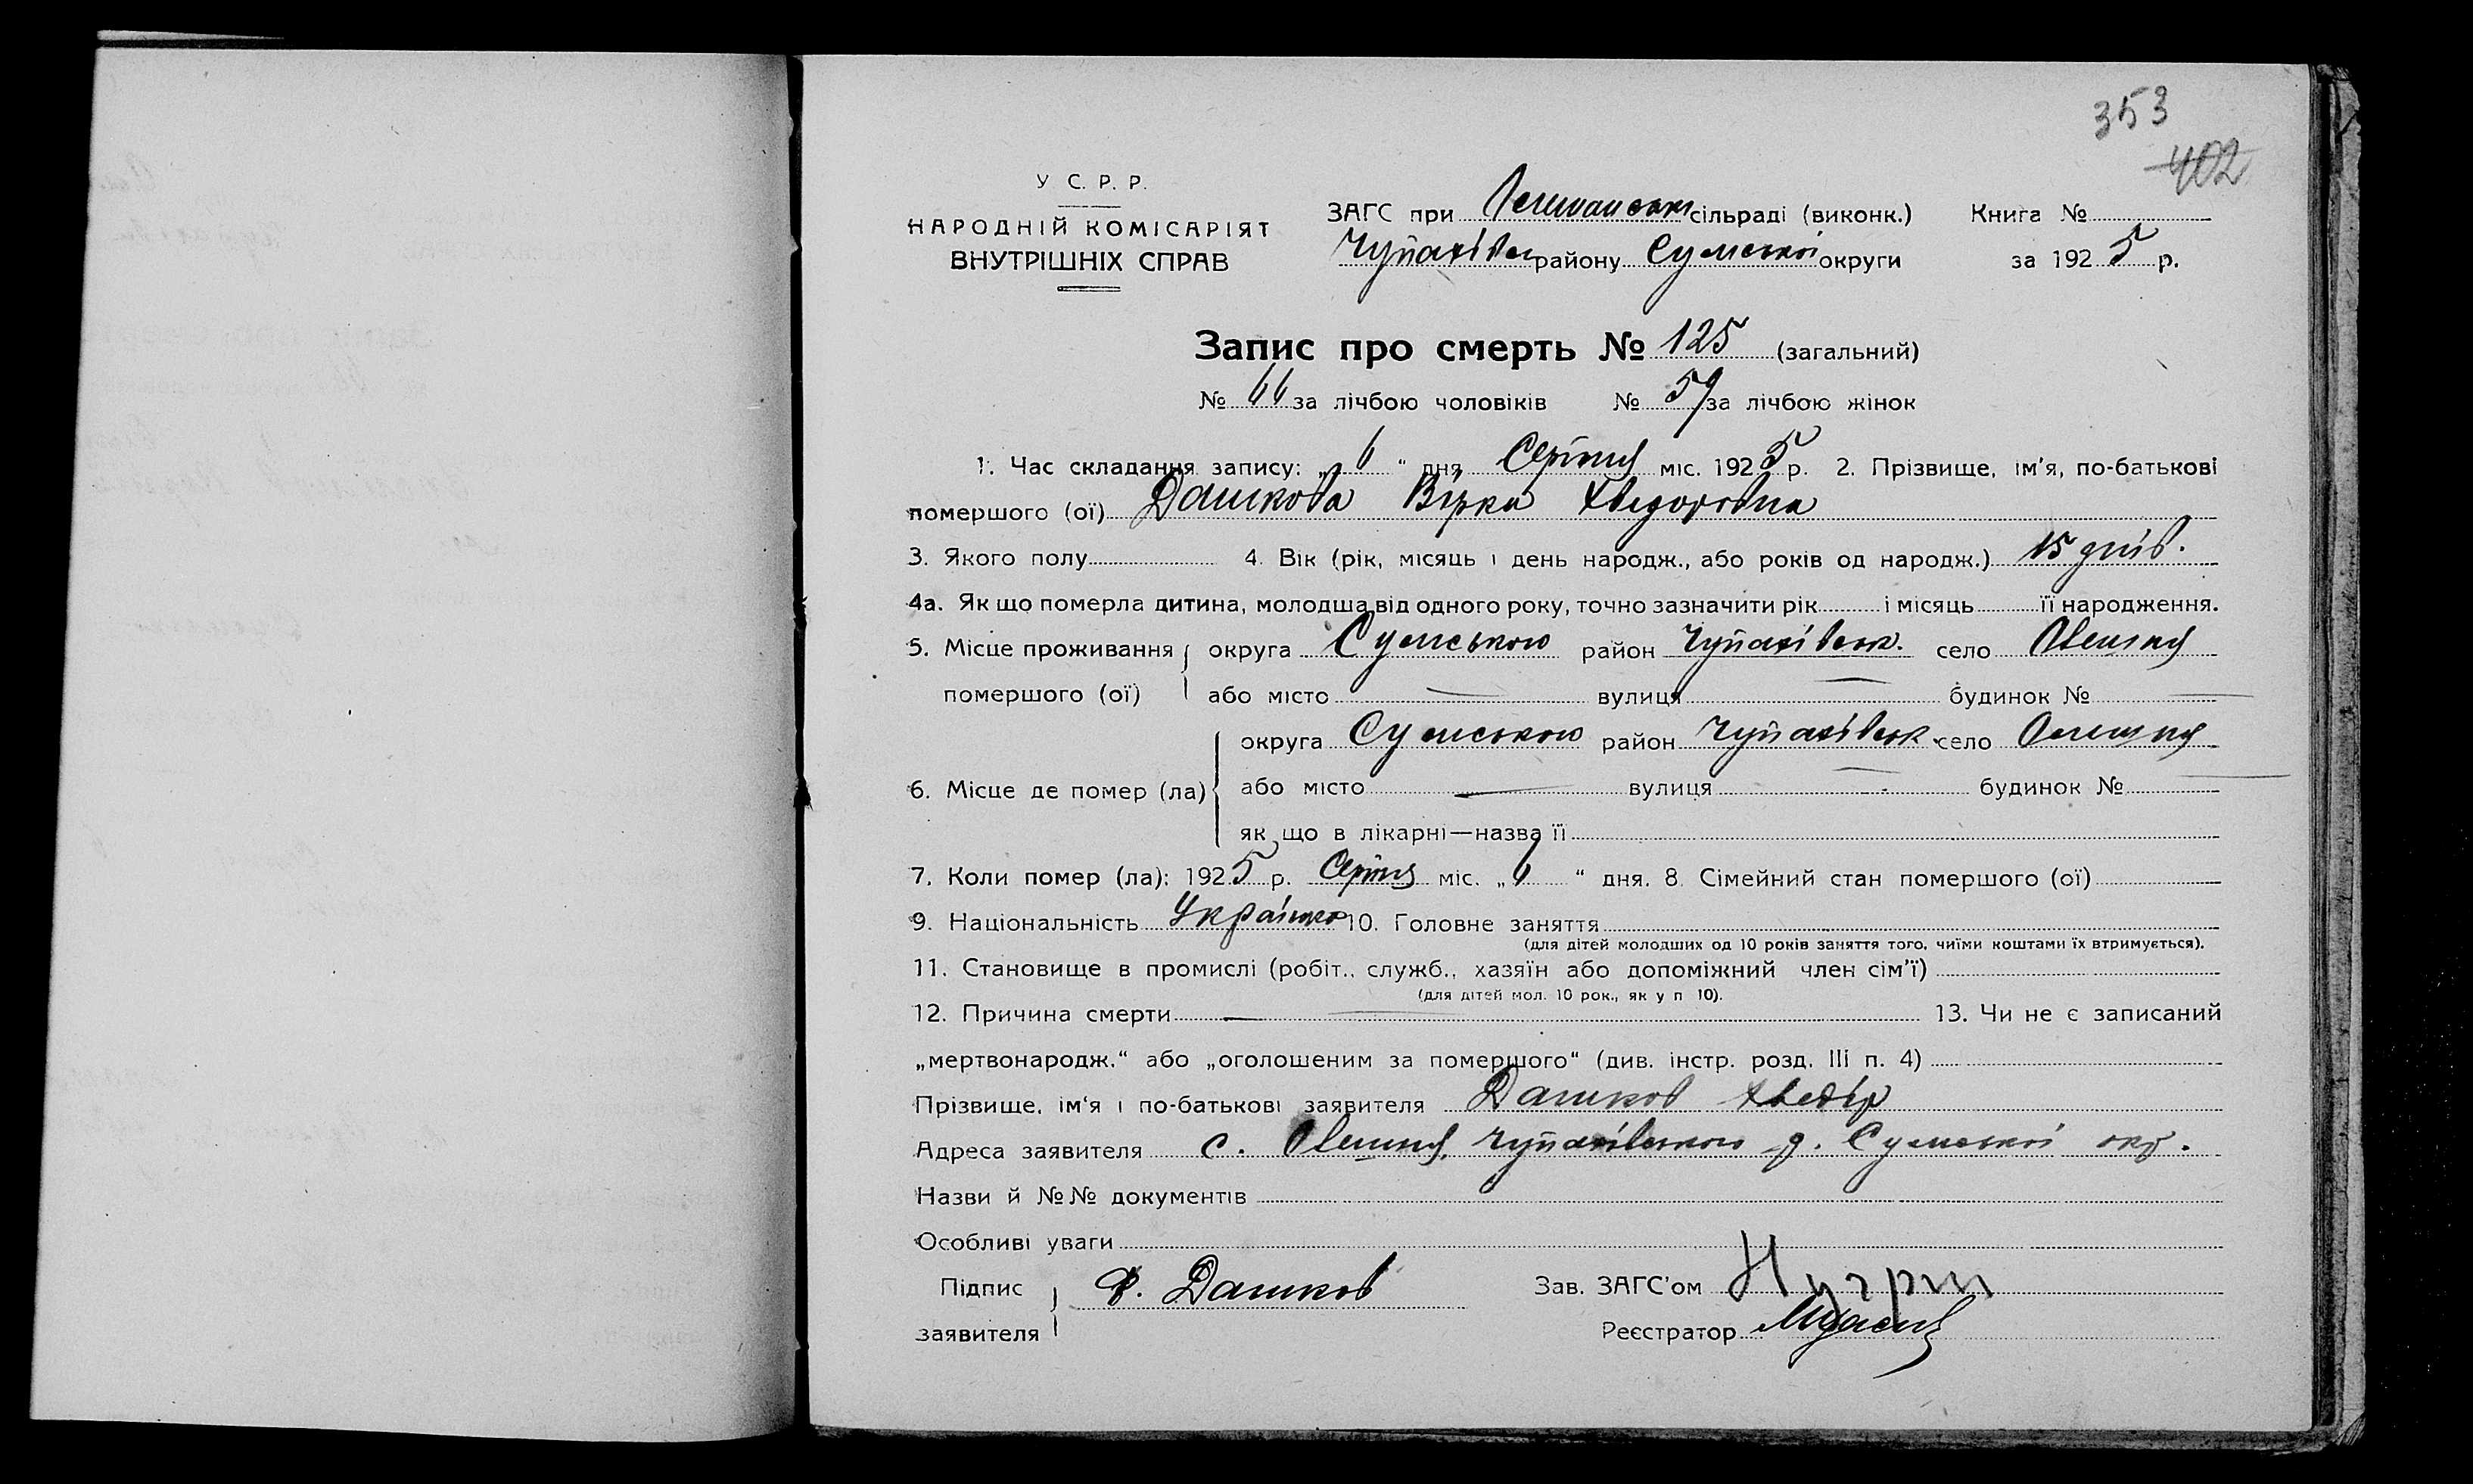 353
402
У С. Р. Р.
НАРОДНІЙ КОМІСАРІЯТ
ВНУТРІШНІХ СПРАВ
ЗАГС при сільраді (виконк.) Книга №
Чупахівськ району Сумської округи за 1925 р.
Запис про смерть № 125 (загальний)
№ 66 за лічбою чоловіків № 59 за лічбою жінок
1. Час складання запису: „6“ дня Серпня міс. 1925 р. 2. Прізвище, ім'я, по-батькові
помершого (ої) Дашкова Вірка Хведоровна
3. Якого полу 4. Вік (рік, місяць і день народж., або років од народж.) 15 днів.
4а. Як що померла дитина, молодша від одного року, точно зазначити рік і місяць її народження.
5. Місце проживання округа Сумською район Чупахівськ. село Олешня
помершого (ої) або місто — вулиця — будинок № —
округа Сумською район Чупахівськ. село Олешня
6. Місце де помер (ла) або місто — вулиця — будинок № —
як що в лікарні—назва її
7. Коли помер (ла): 1925 р. Серпня міс. „6“ дня. 8. Сімейний стан помершого (ої)
9. Національність Українка 10. Головне заняття
(для дітей молодших од 10 років заняття того, чиїми коштами їх втримується).
11. Становище в промислі (робіт., служб., хазяїн або допоміжний член сім'ї)
(для дітей мол. 10 рок., як у п 10).
12. Причина смерти — 13. Чи не є записаний
„мертвонародж.“ або „оголошеним за помершого“ (див. інстр. розд. III п. 4)
Прізвище, ім'я і по-батькові заявителя Дашков Хведір
Адреса заявителя с. Олешня, Чупахівського р. Сумської окр.
Назви й №№ документів
Особливі уваги
Підпис Ф. Дашков Зав. ЗАГС'ом
заявителя Реєстратор